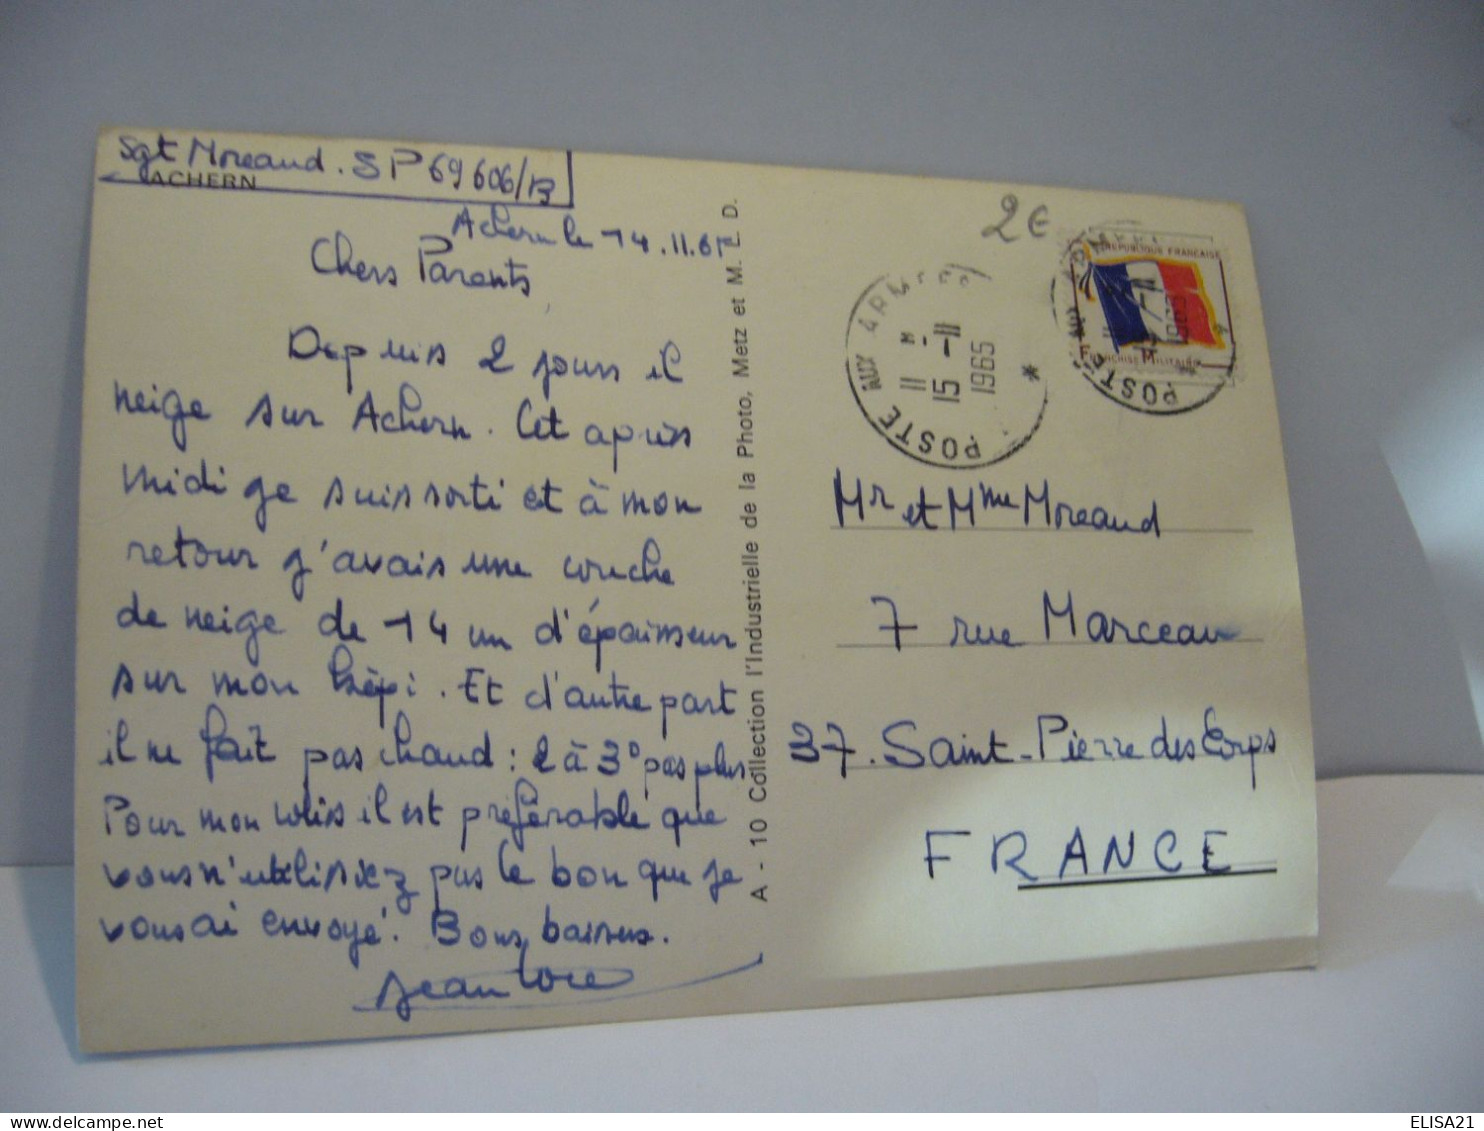 Sgt Moreaud. SP 69606/B
ACHERN
Achern le 14.11.65
Chers Parents
Depuis 2 jours il
neige sur Achern. Cet après
midi je suis sorti et à mon
retour j'avais une couche
de neige de 14 cm d'épaisseur
sur mon képi. Et d'autre part
il ne fait pas chaud : 2 à 3° pas plus
Pour mon colis il est préférable que
vous n'utilisiez pas le bon que je
vous ai envoyé. Bons baisers.
A - 10 Collection l'Industrielle de la Photo, Metz et M. L. D.
2€
POSTE AUX ARMÉES
11 H
15 - 11
1965
*
RÉPUBLIQUE FRANÇAISE
FRANCHISE MILITAIRE
POSTE AUX ARMÉES
Mr et Mme Moreaud
7 rue Marceau
37. Saint-Pierre des Corps
FRANCE
ELISA21